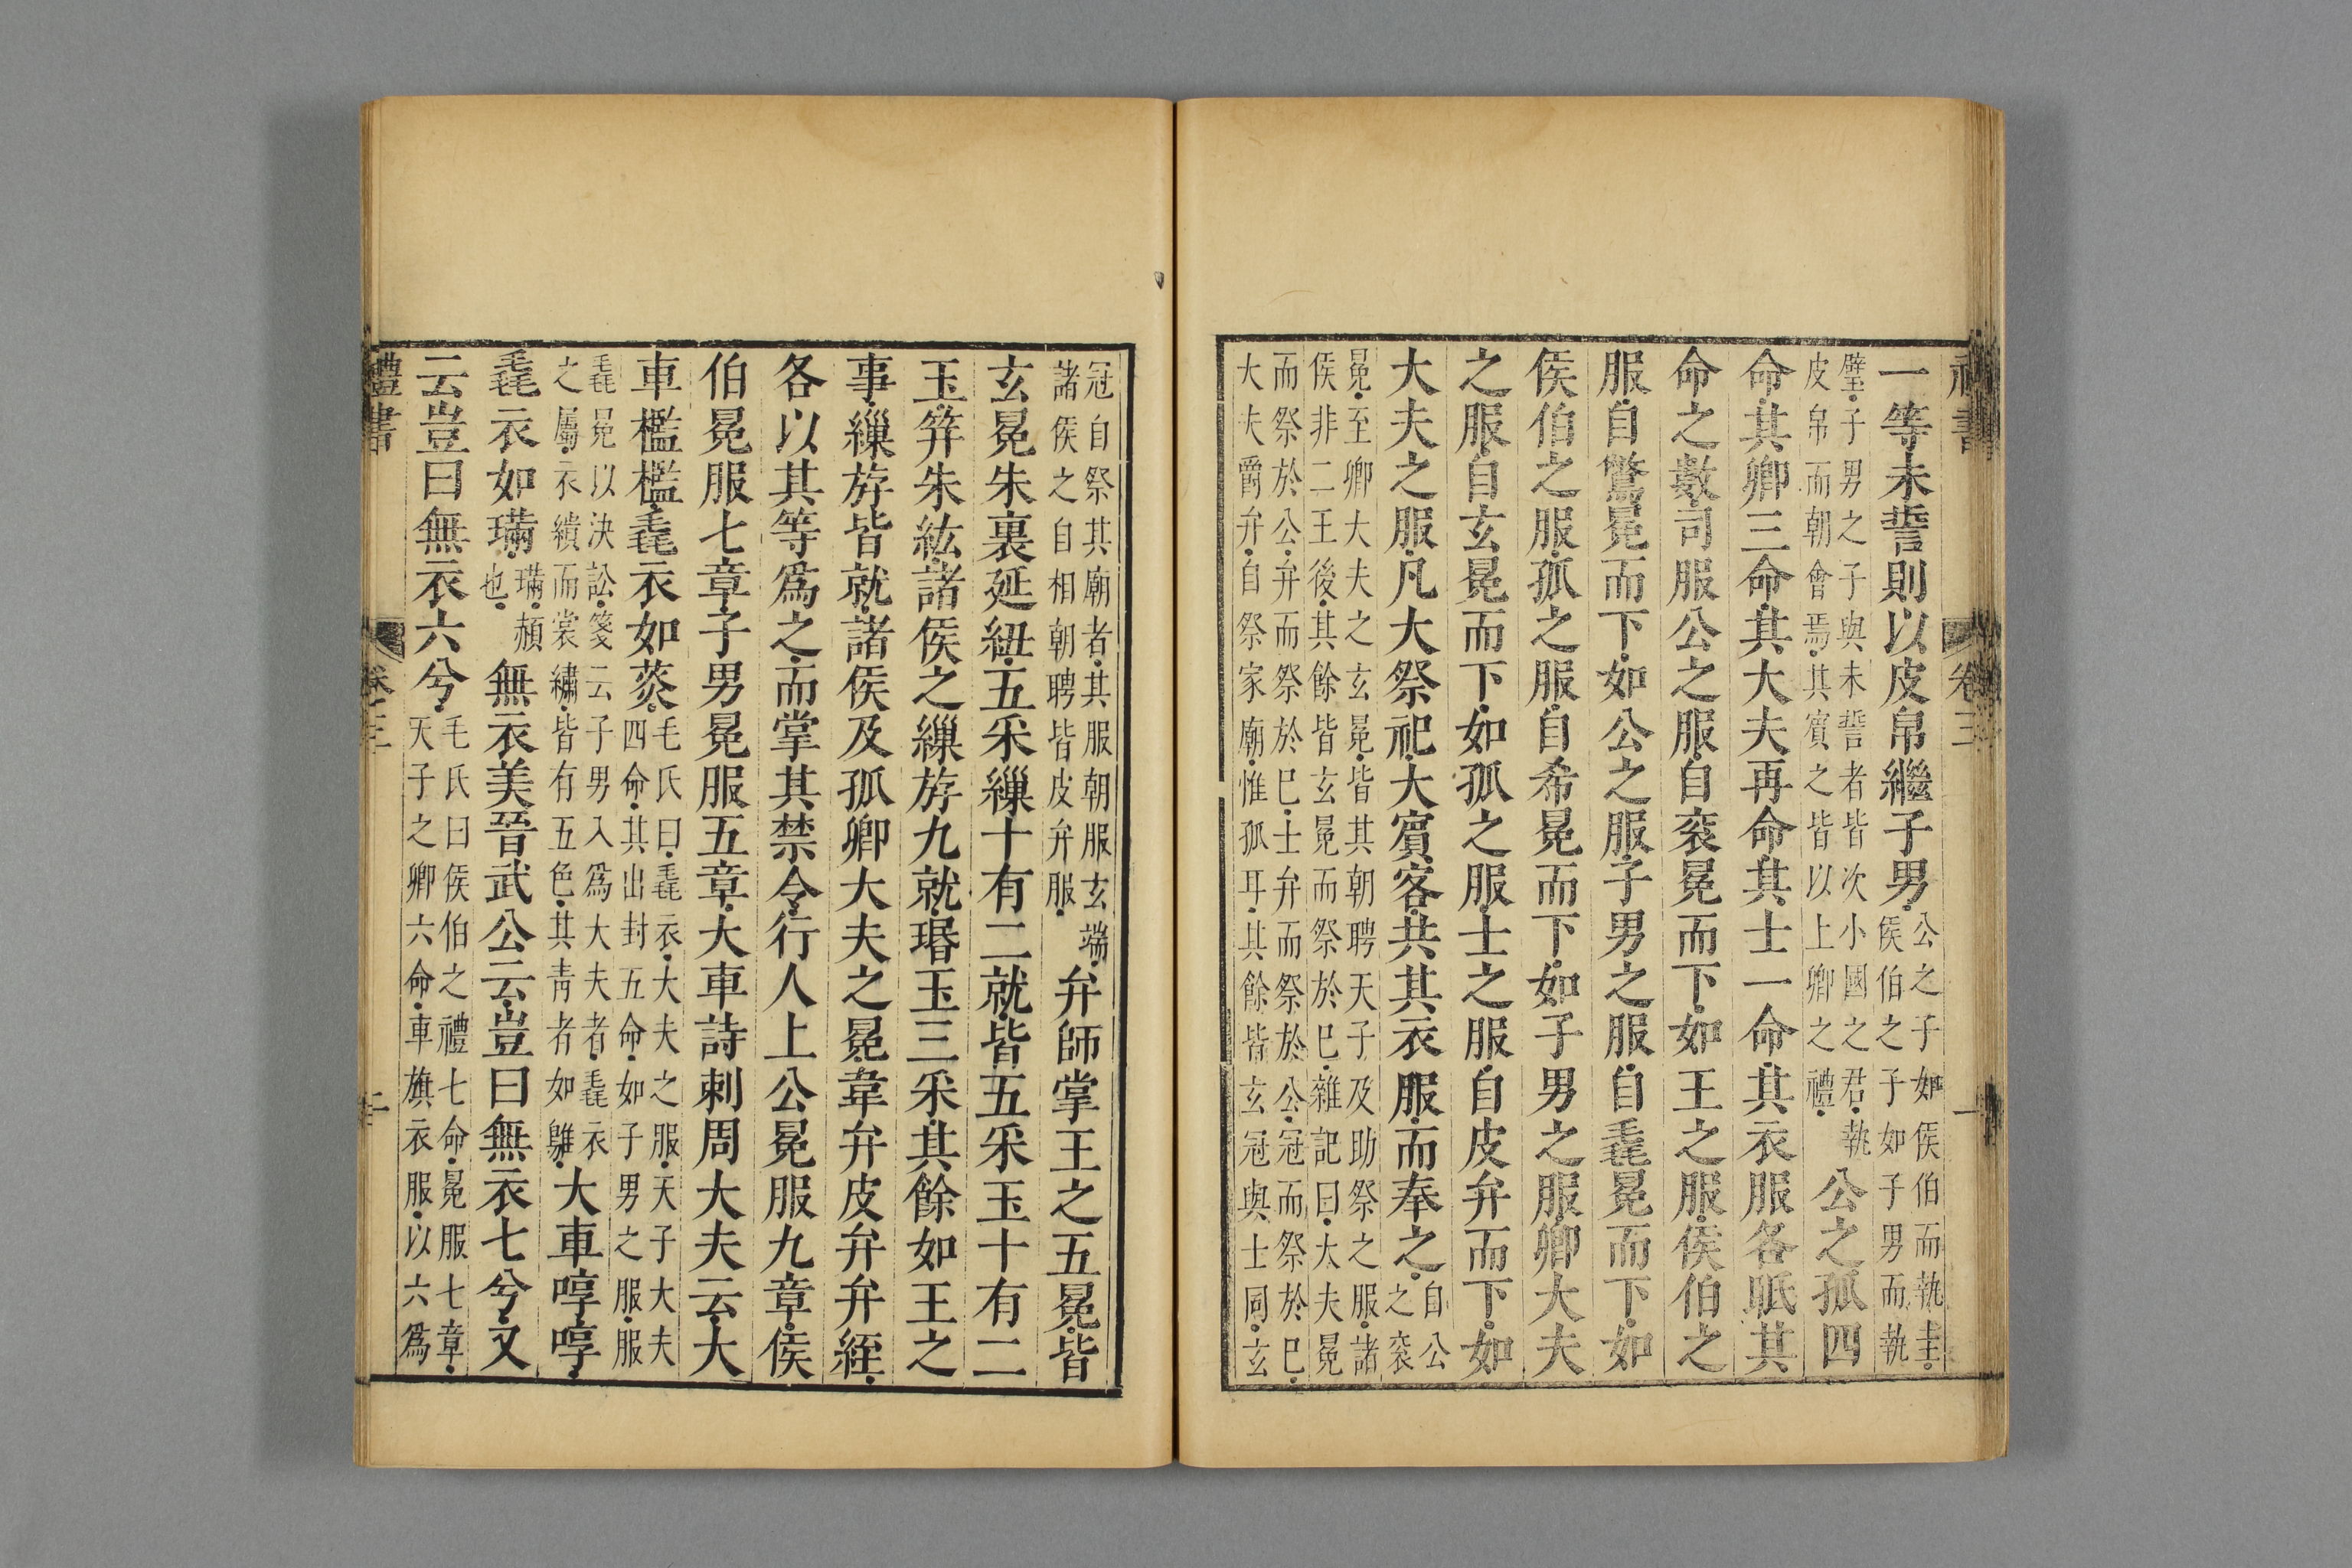 一等未誓則以皮帛繼子男公之子如侯伯而執圭侯伯之子如子男而執
璧子男之子與未誓者皆次小國之君執皮帛而朝會焉其賓之皆以上卿之禮公之孤四
命其卿三命其大夫再命其士一命其衣服各眡其
命之數司服公之服自衮冕而下如王之服侯伯之
服自鷩冕而下如公之服子男之服自毳冕而下如
侯伯之服孤之服自希冕而下如子男之服卿大夫
之服自玄冕而下如孤之服士之服自皮弁而下如
大夫之服凡大祭祀大賓客共其衣服而奉之自公之衮
冕至卿大夫之玄冕皆其朝聘天子及助祭之服諸侯非二王後其餘皆玄冕而祭於巳雜記曰大夫冕
而祭於公弁而祭於巳士弁而祭於公冠而祭於巳大夫爵弁自祭家廟惟孤耳其餘皆玄冠與士同玄
卷三
冠自祭其廟者其服朝服玄端諸侯之自相朝聘皆皮弁服弁師掌王之五冕皆
玄冕朱裏延紐五采繅十有二就皆五采玉十有二
玉笄朱紘諸侯之繅斿九就瑉玉三采其餘如王之
事繅斿皆就諸侯及孤卿大夫之冕韋弁皮弁弁絰
各以其等爲之而掌其禁令行人上公冕服九章侯
伯冕服七章子男冕服五章大車詩刺周大夫云大
車檻檻毳衣如菼毛氏曰毳衣大夫之服天子大夫四命其出封五命如子男之服服
毳冕以決訟箋云子男入爲大夫者毳衣之屬衣繢而裳繡皆有五色其青者如鵻大車啍啍
毳衣如璊璊赬也無衣美晉武公云豈曰無衣七兮又
云豈曰無衣六兮毛氏曰侯伯之禮七命冕服七章天子之卿六命車旗衣服以六爲
禮書 卷三 二